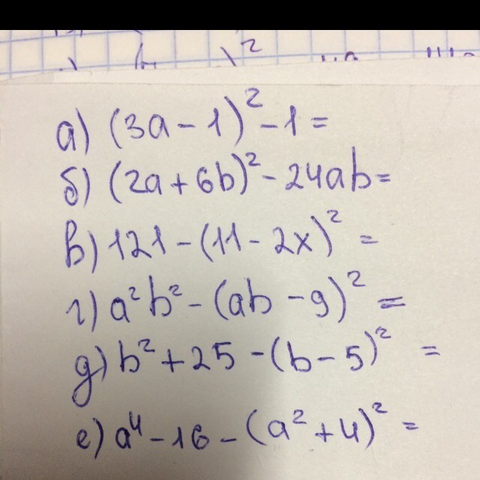 а) (3a-1)²-1=
б) (2a+6b)²-24ab=
в) 121-(11-2x)²=
г) a²b²-(ab-9)²=
д) b²+25-(b-5)²=
е) a⁴-16-(a²+4)²=